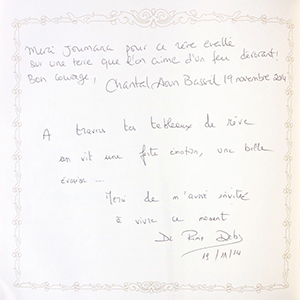 Merci Joumana pour ce rêve éveillé
sur une terre que l'on aime d'un feu dévorant!
Bon courage,
Chantal Aoun Bassil 19 novembre 2014
A travers tes tableaux de rêve
on vit une forte émotion, une belle
évasion ...
Merci de m'avoir invitée
à vivre ce moment
Dr
19/11/14